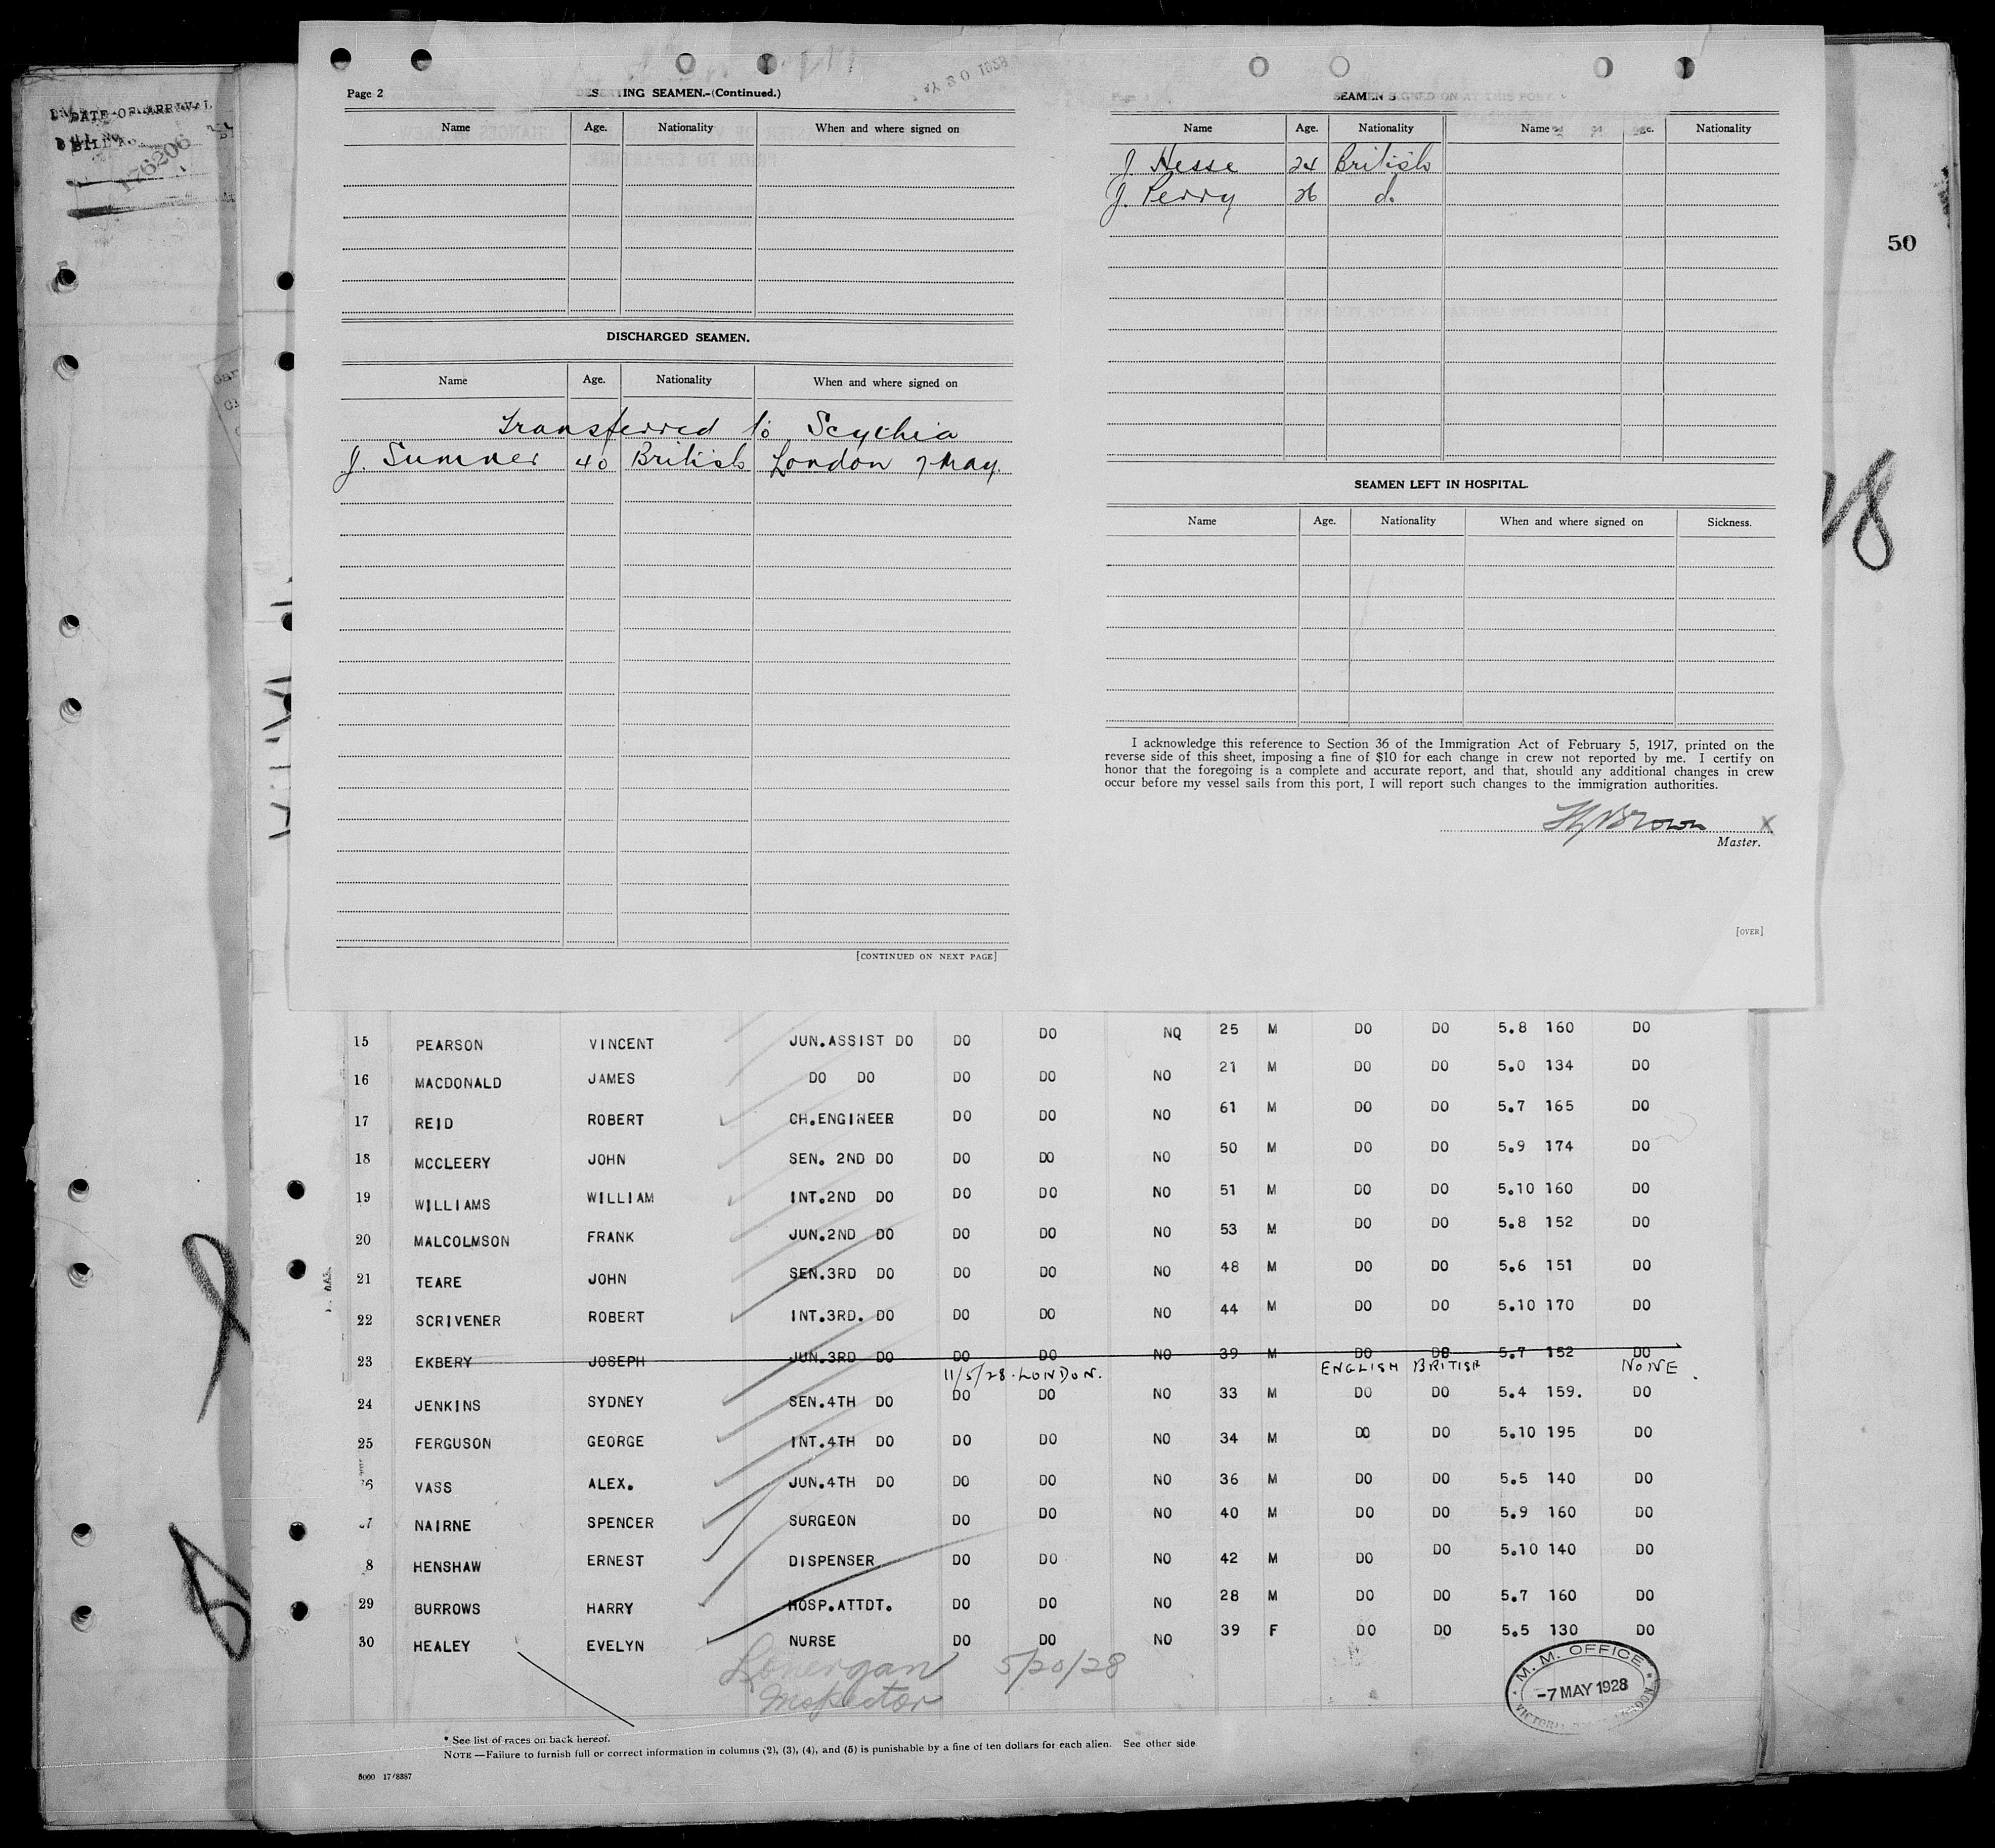 DATE OF ARRIVAL
FILE No.
176206
Page 2
DESERTING SEAMEN.-(Continued.)
Name Age. Nationality When and where signed on
DISCHARGED SEAMEN.
Name Age. Nationality When and where signed on
Transferred to Scythia
J. Sumner 40 British London 7 May.
[CONTINUED ON NEXT PAGE]
SEAMEN SIGNED ON AT THIS PORT.
Name Age. Nationality Name Age. Nationality
J. Hesse 24 British
J. Perry 26 d.
SEAMEN LEFT IN HOSPITAL.
Name Age. Nationality When and where signed on Sickness.
I acknowledge this reference to Section 36 of the Immigration Act of February 5, 1917, printed on the
reverse side of this sheet, imposing a fine of $10 for each change in crew not reported by me. I certify on
honor that the foregoing is a complete and accurate report, and that, should any additional changes in crew
occur before my vessel sails from this port, I will report such changes to the immigration authorities.
Brown X
Master.
[OVER]
50
15 PEARSON VINCENT JUN.ASSIST DO DO DO NO 25 M DO DO 5.8 160 DO
16 MACDONALD JAMES DO DO DO DO NO 21 M DO DO 5.0 134 DO
17 REID ROBERT CH.ENGINEER DO DO NO 61 M DO DO 5.7 165 DO
18 MCCLEERY JOHN SEN. 2ND DO DO DO NO 50 M DO DO 5.9 174 DO
19 WILLIAMS WILLIAM INT.2ND DO DO DO NO 51 M DO DO 5.10 160 DO
20 MALCOLMSON FRANK JUN.2ND DO DO DO NO 53 M DO DO 5.8 152 DO
21 TEARE JOHN SEN.3RD DO DO DO NO 48 M DO DO 5.6 151 DO
22 SCRIVENER ROBERT INT.3RD. DO DO DO NO 44 M DO DO 5.10 170 DO
23 EKBERY JOSEPH JUN.3RD DO DO DO NO 39 M DO DO 5.7 152 DO
11/5/28. LONDON. ENGLISH BRITISH NONE.
24 JENKINS SYDNEY SEN.4TH DO DO DO NO 33 M DO DO 5.4 159. DO
25 FERGUSON GEORGE INT.4TH DO DO DO NO 34 M DO DO 5.10 195 DO
6 VASS ALEX. JUN.4TH DO DO DO NO 36 M DO DO 5.5 140 DO
7 NAIRNE SPENCER SURGEON DO DO NO 40 M DO DO 5.9 160 DO
8 HENSHAW ERNEST DISPENSER DO DO NO 42 M DO DO 5.10 140 DO
29 BURROWS HARRY HOSP.ATTDT. DO DO NO 28 M DO DO 5.7 160 DO
30 HEALEY EVELYN NURSE DO DO NO 39 F DO DO 5.5 130 DO
Lonergan 5/20/28
Inspector
M. M. OFFICE
-7 MAY 1928
* See list of races on back hereof.
NOTE —Failure to furnish full or correct information in columns (2), (3), (4), and (5) is punishable by a fine of ten dollars for each alien. See other side
5000 17/8387